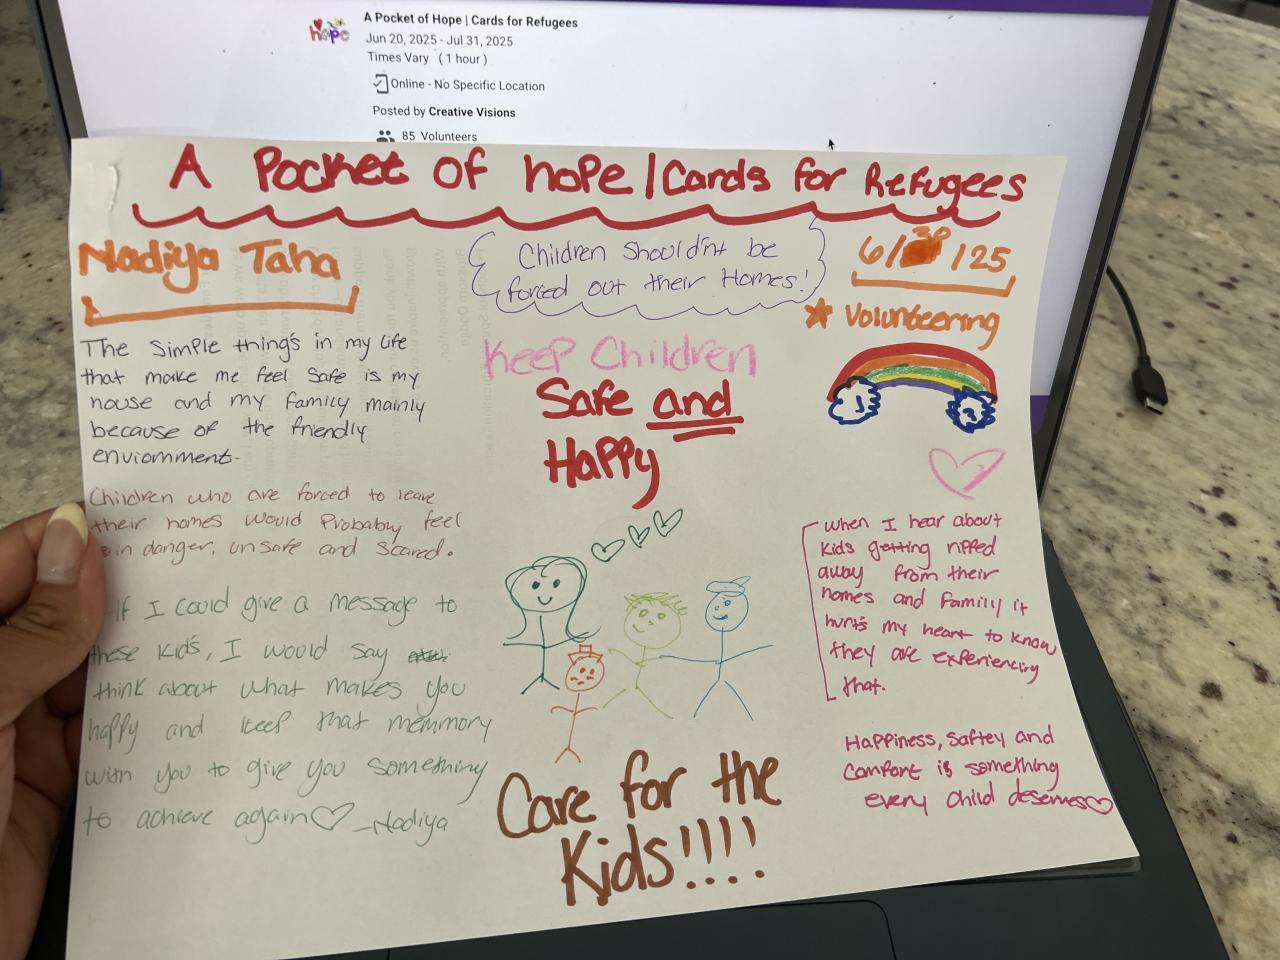 hope
A Pocket of Hope | Cards for Refugees
Jun 20, 2025 - Jul 31, 2025
Times Vary (1 hour)
Online - No Specific Location
Posted by Creative Visions
85 Volunteers
A Pocket of hope | Cards for Refugees
Nadiya Taha
Children Shouldn't be
forced out their Homes!
6/ /125
Volunteering
The simple thing's in my life
that make me feel safe is my
house and my family mainly
because of the friendly
enviornment.
Keep Children
Safe and
Happy
Children who are forced to leave
their homes would Probabby feel
in danger, unsafe and scared.
If I could give a message to
these Kid's, I would say
think about what makes you
happy and keep that memmory
with you to give you something
to achieve again♡ -Nadiya
Care for the
Kids!!!!
when I hear about
kids getting ripped
away from their
homes and familly it
hurt's my heart to know
they are experiencing
that.
Happiness, saftey and
comfort is something
every child deserves♡